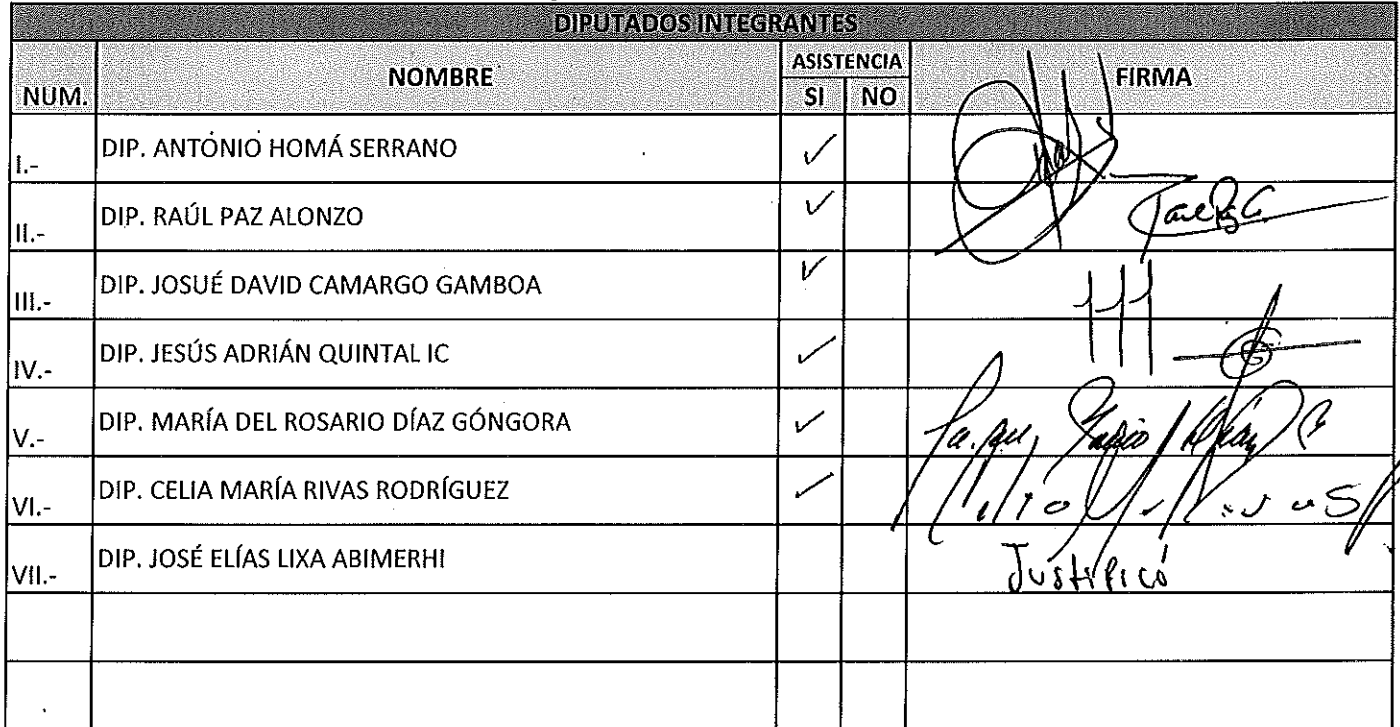 DIPUTADOS INTEGRANTES
NUM. NOMBRE ASISTENCIA FIRMA
SI NO
I.- DIP. ANTONIO HOMÁ SERRANO ✓
II.- DIP. RAÚL PAZ ALONZO ✓
III.- DIP. JOSUÉ DAVID CAMARGO GAMBOA ✓
IV.- DIP. JESÚS ADRIÁN QUINTAL IC ✓
V.- DIP. MARÍA DEL ROSARIO DÍAZ GÓNGORA ✓
VI.- DIP. CELIA MARÍA RIVAS RODRÍGUEZ ✓
VII.- DIP. JOSÉ ELÍAS LIXA ABIMERHI Justificó